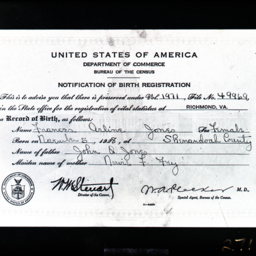 UNITED STATES OF AMERICA
DEPARTMENT OF COMMERCE
BUREAU OF THE CENSUS
NOTIFICATION OF BIRTH REGISTRATION
This is to advise you that there is preserved under Vol. 1971, File No. 49962
in the State office for the registration of vital statistics at RICHMOND, VA.
a Record of Birth, as follows:
Name Frances Jones Sex Female
Born on November 5, at Shenandoah County
Name of father John D. Jones
Maiden name of mother L. Fry
W.M. Steuart
Director of the Census.
W.A. Plecker M.D.
Special Agent, Bureau of the Census.